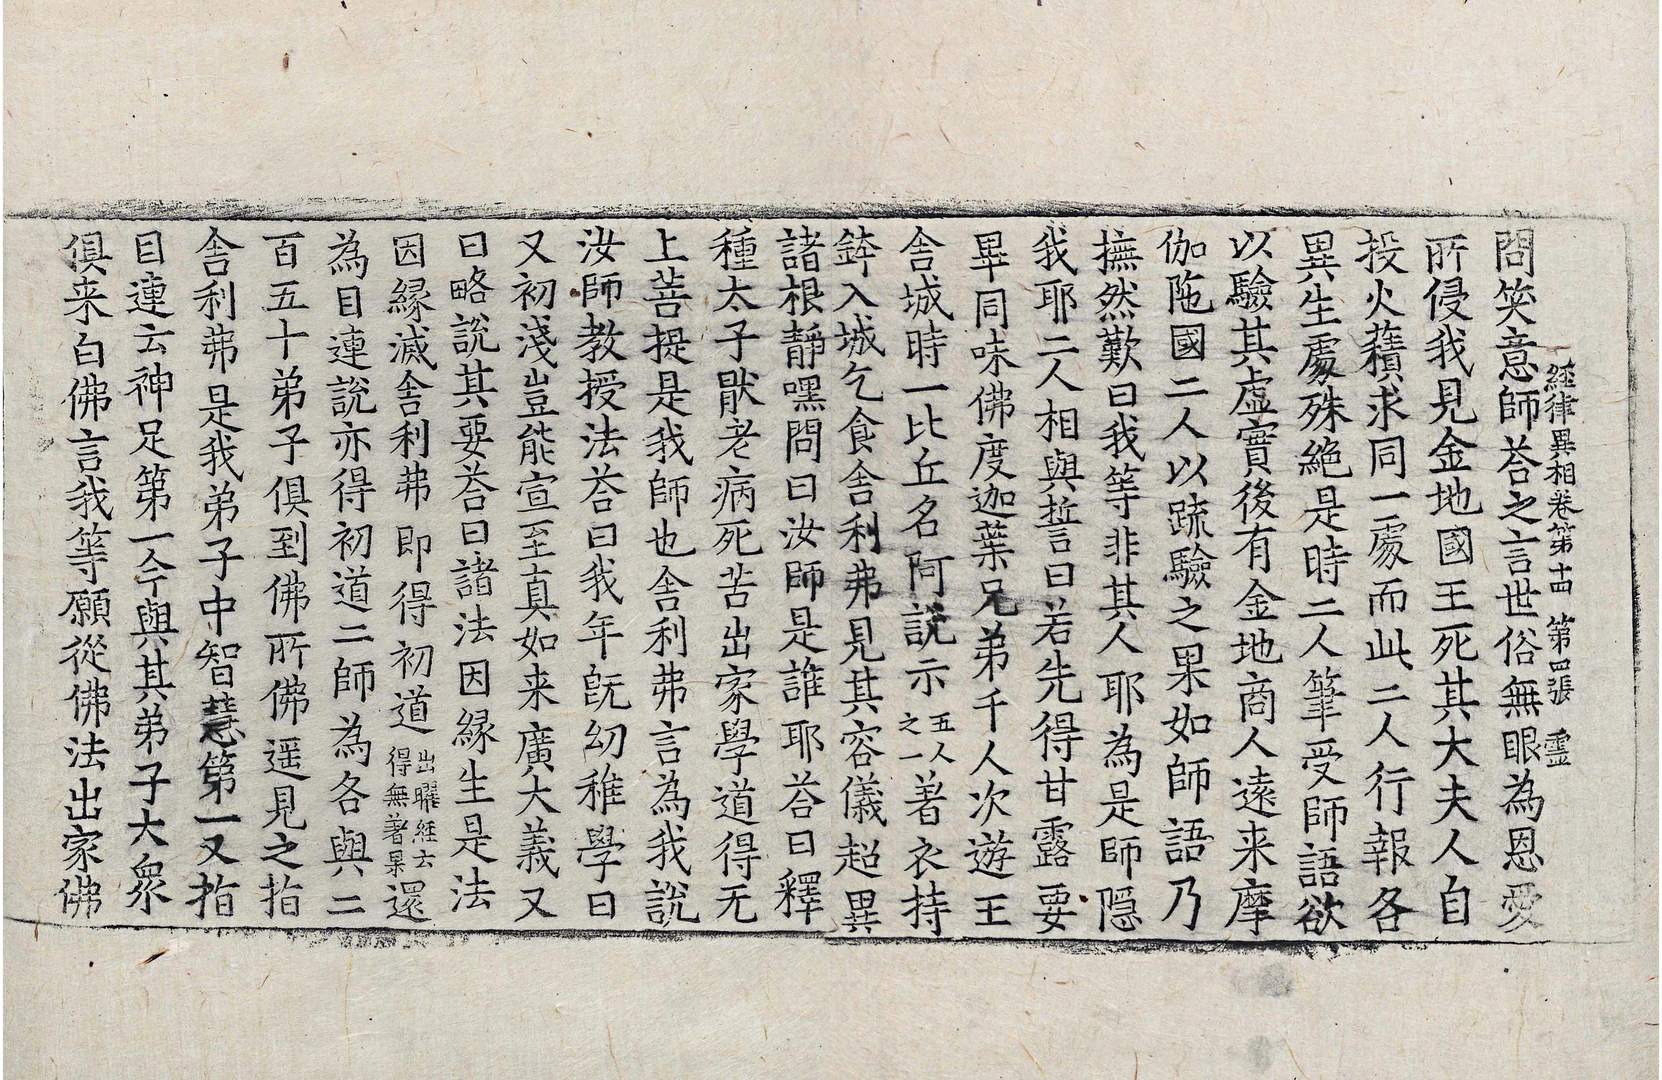 經律異相卷第十四 第四張 靈
問笑意師荅之言世俗無眼為恩愛
所侵我見金地國王死其大夫人自
投火𧂐求同一處而此二人行報各
異生處殊絕是時二人筆受師語欲
以驗其虛實後有金地商人遠来摩
伽陁國二人以䟽驗之果如師語乃
撫然歎曰我等非其人耶為是師隱
我耶二人相與誓言曰若先得甘露要
畢同味佛度迦葉兄弟千人次遊王
舍城時一比丘名阿說示五人之一著衣持
鉢入城乞食舍利弗見其容儀超異
諸根靜嘿問曰汝師是誰耶荅曰釋
種太子猒老病死苦出家學道得无
上菩提是我師也舍利弗言為我說
汝師教授法荅曰我年旣幼稚學日
又初淺豈能宣至真如来廣大義又
曰略說其要荅曰諸法因緣生是法
因緣滅舍利弗即得初道出曜經云得無著果還
為目連說亦得初道二師為各與二
百五十弟子俱到佛所佛遥見之指
舍利弗是我弟子中智慧第一又指
目連云神足第一今與其弟子大衆
俱来白佛言我等願從佛法出家佛